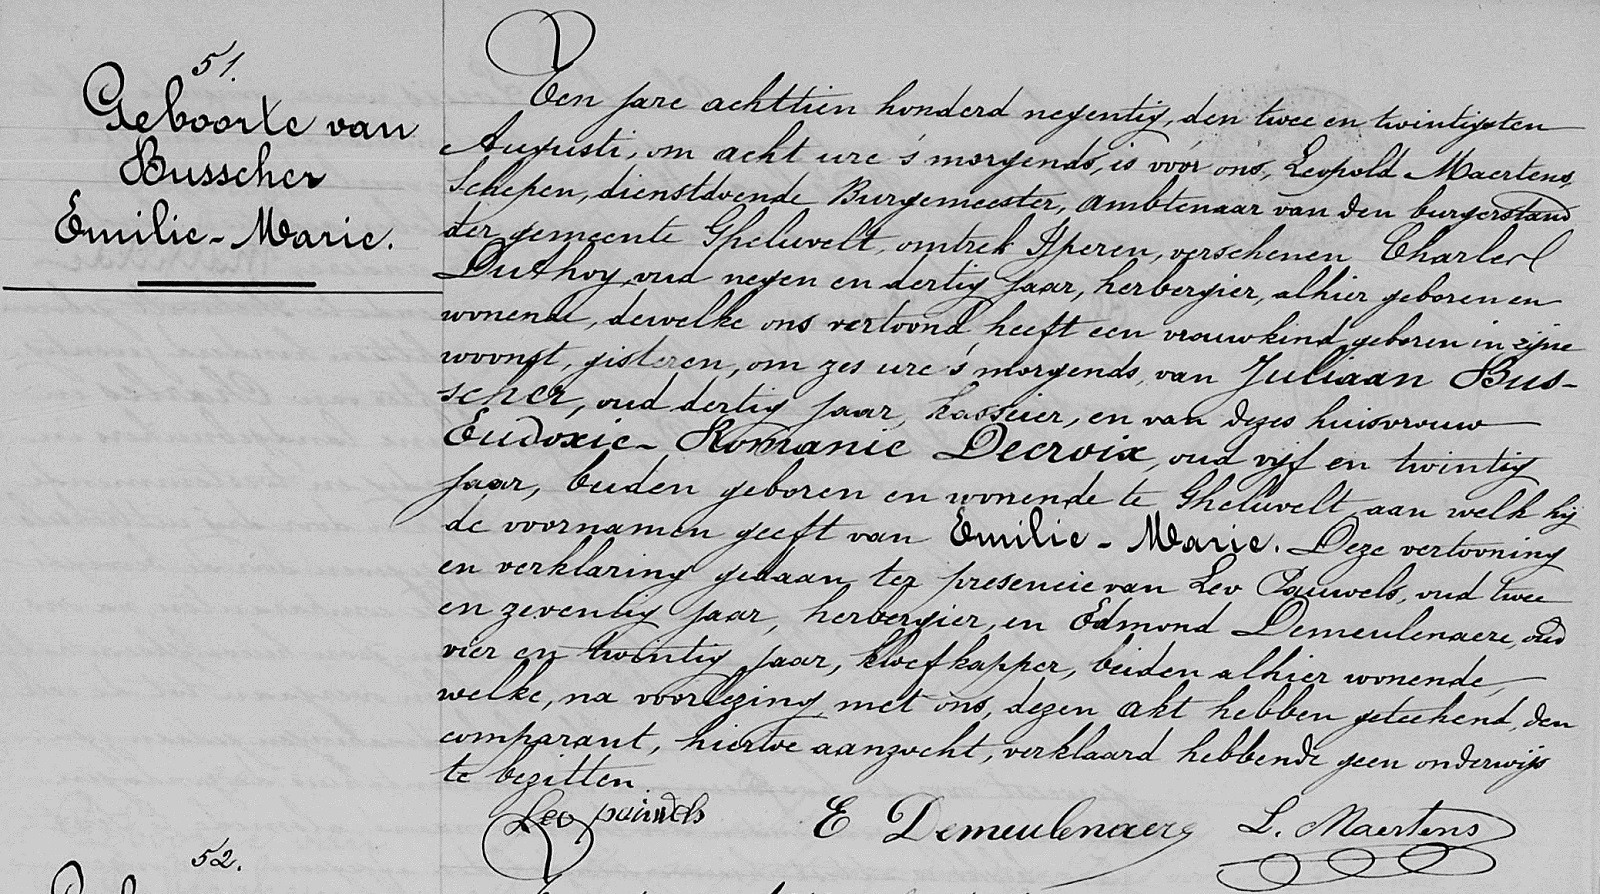 51.
Geboorte van
Busscher
Emilie-Marie.
Ten jare achttien honderd negentig, den twee en twintigsten
Augusti, om acht ure 's morgends, is voor ons, Leopold Maertens,
Schepen, dienstdoende Burgemeester, ambtenaar van den burgerstand
der gemeente Gheluvelt, omtrek Yperen, verschenen Charles
Duthoy, oud negen en dertig jaar, herbergier, alhier geboren en
wonende, dewelke ons vertoond heeft een vrouwkind, geboren in zijne
woonst, gisteren, om zes ure 's morgends, van Juliaan Bus-
scher, oud dertig jaar, kassier, en van dezes huisvrouw
Eudoxie-Romanie Decroix, oud vijf en twintig
jaar, beiden geboren en wonende te Gheluvelt, aan welk hij
de voornamen geeft van Emilie-Marie. Deze vertooning
en verklaring gedaan ter presencie van Leo Pauwels, oud twee
en zeventig jaar, herbergier, en Edmond Demeulenaere, oud
vier en twintig jaar, kloefkapper, beiden alhier wonende,
welke, na voorlezing, met ons, dezen akt hebben geteekend, den
comparant, hiertoe aanzocht, verklaard hebbende geen onderwijs
te bezitten.
Leo pauwels E Demeulenaere L. Maertens
52.